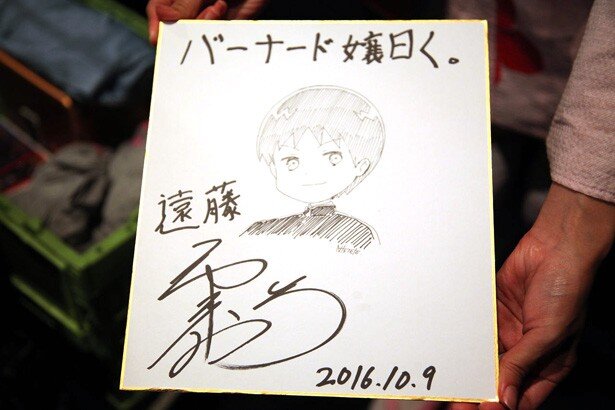 バーナード嬢曰く。
遠藤
2016.10.9